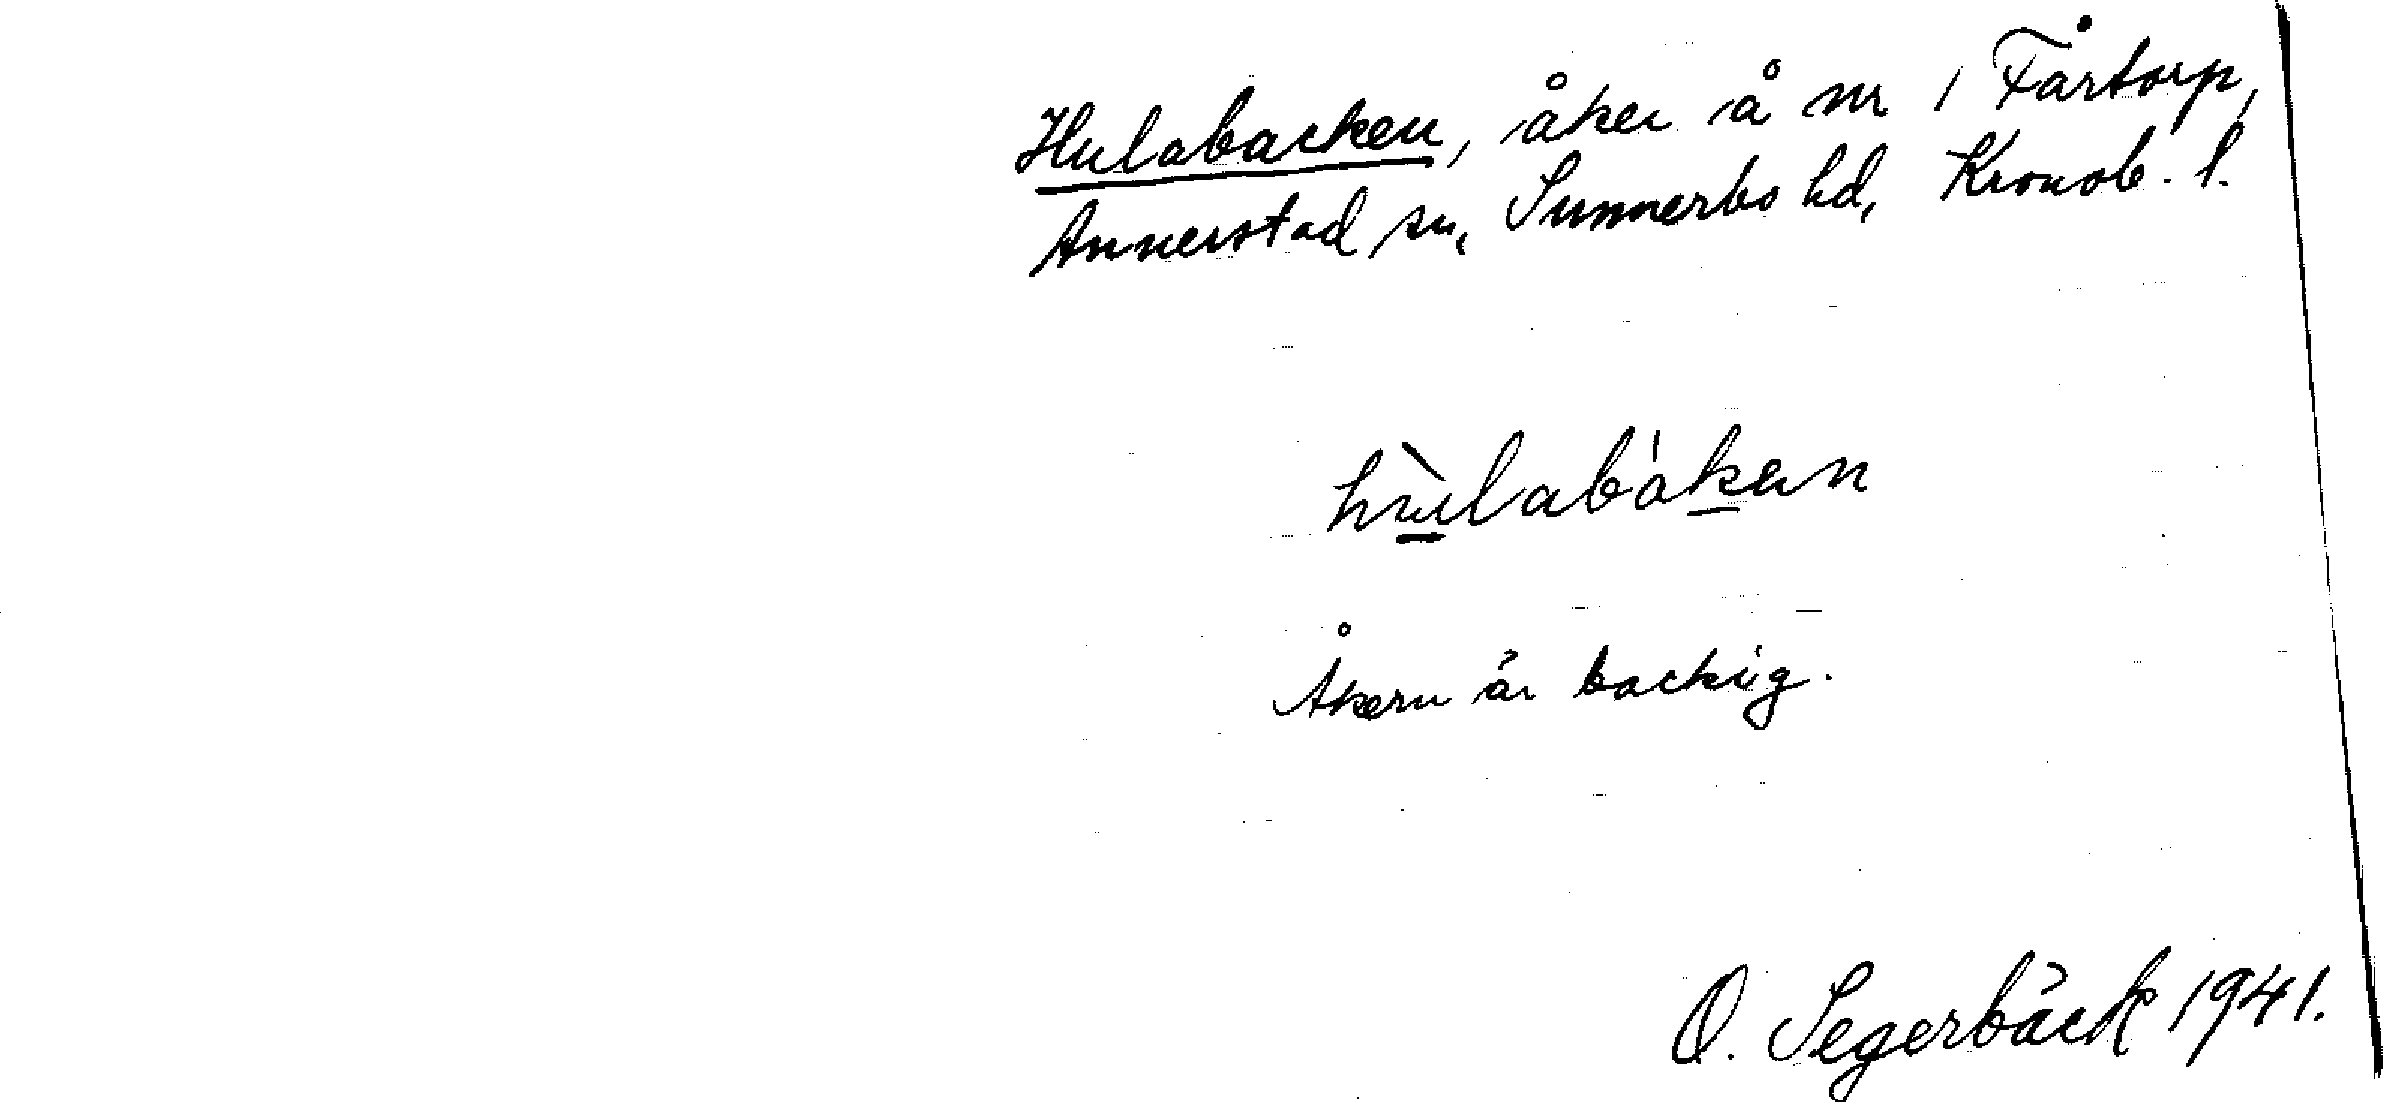 Hulabacken, åker å nr 1 Fårtorp,
Annerstad sn, Sunnerbo hd, Kronob. l.
hùlabákan
Åkern är backig.
O. Segerbäck 1941.